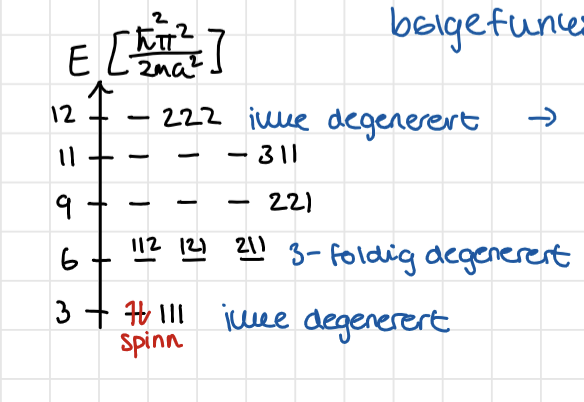 bølgefunk
E [ħ²π²/2ma²]
12 - 222 ikke degenerert →
11 - - - 311
9 - - - 221
6 112 121 211 3-foldig degenerert
3 111 ikke degenerert
spinn